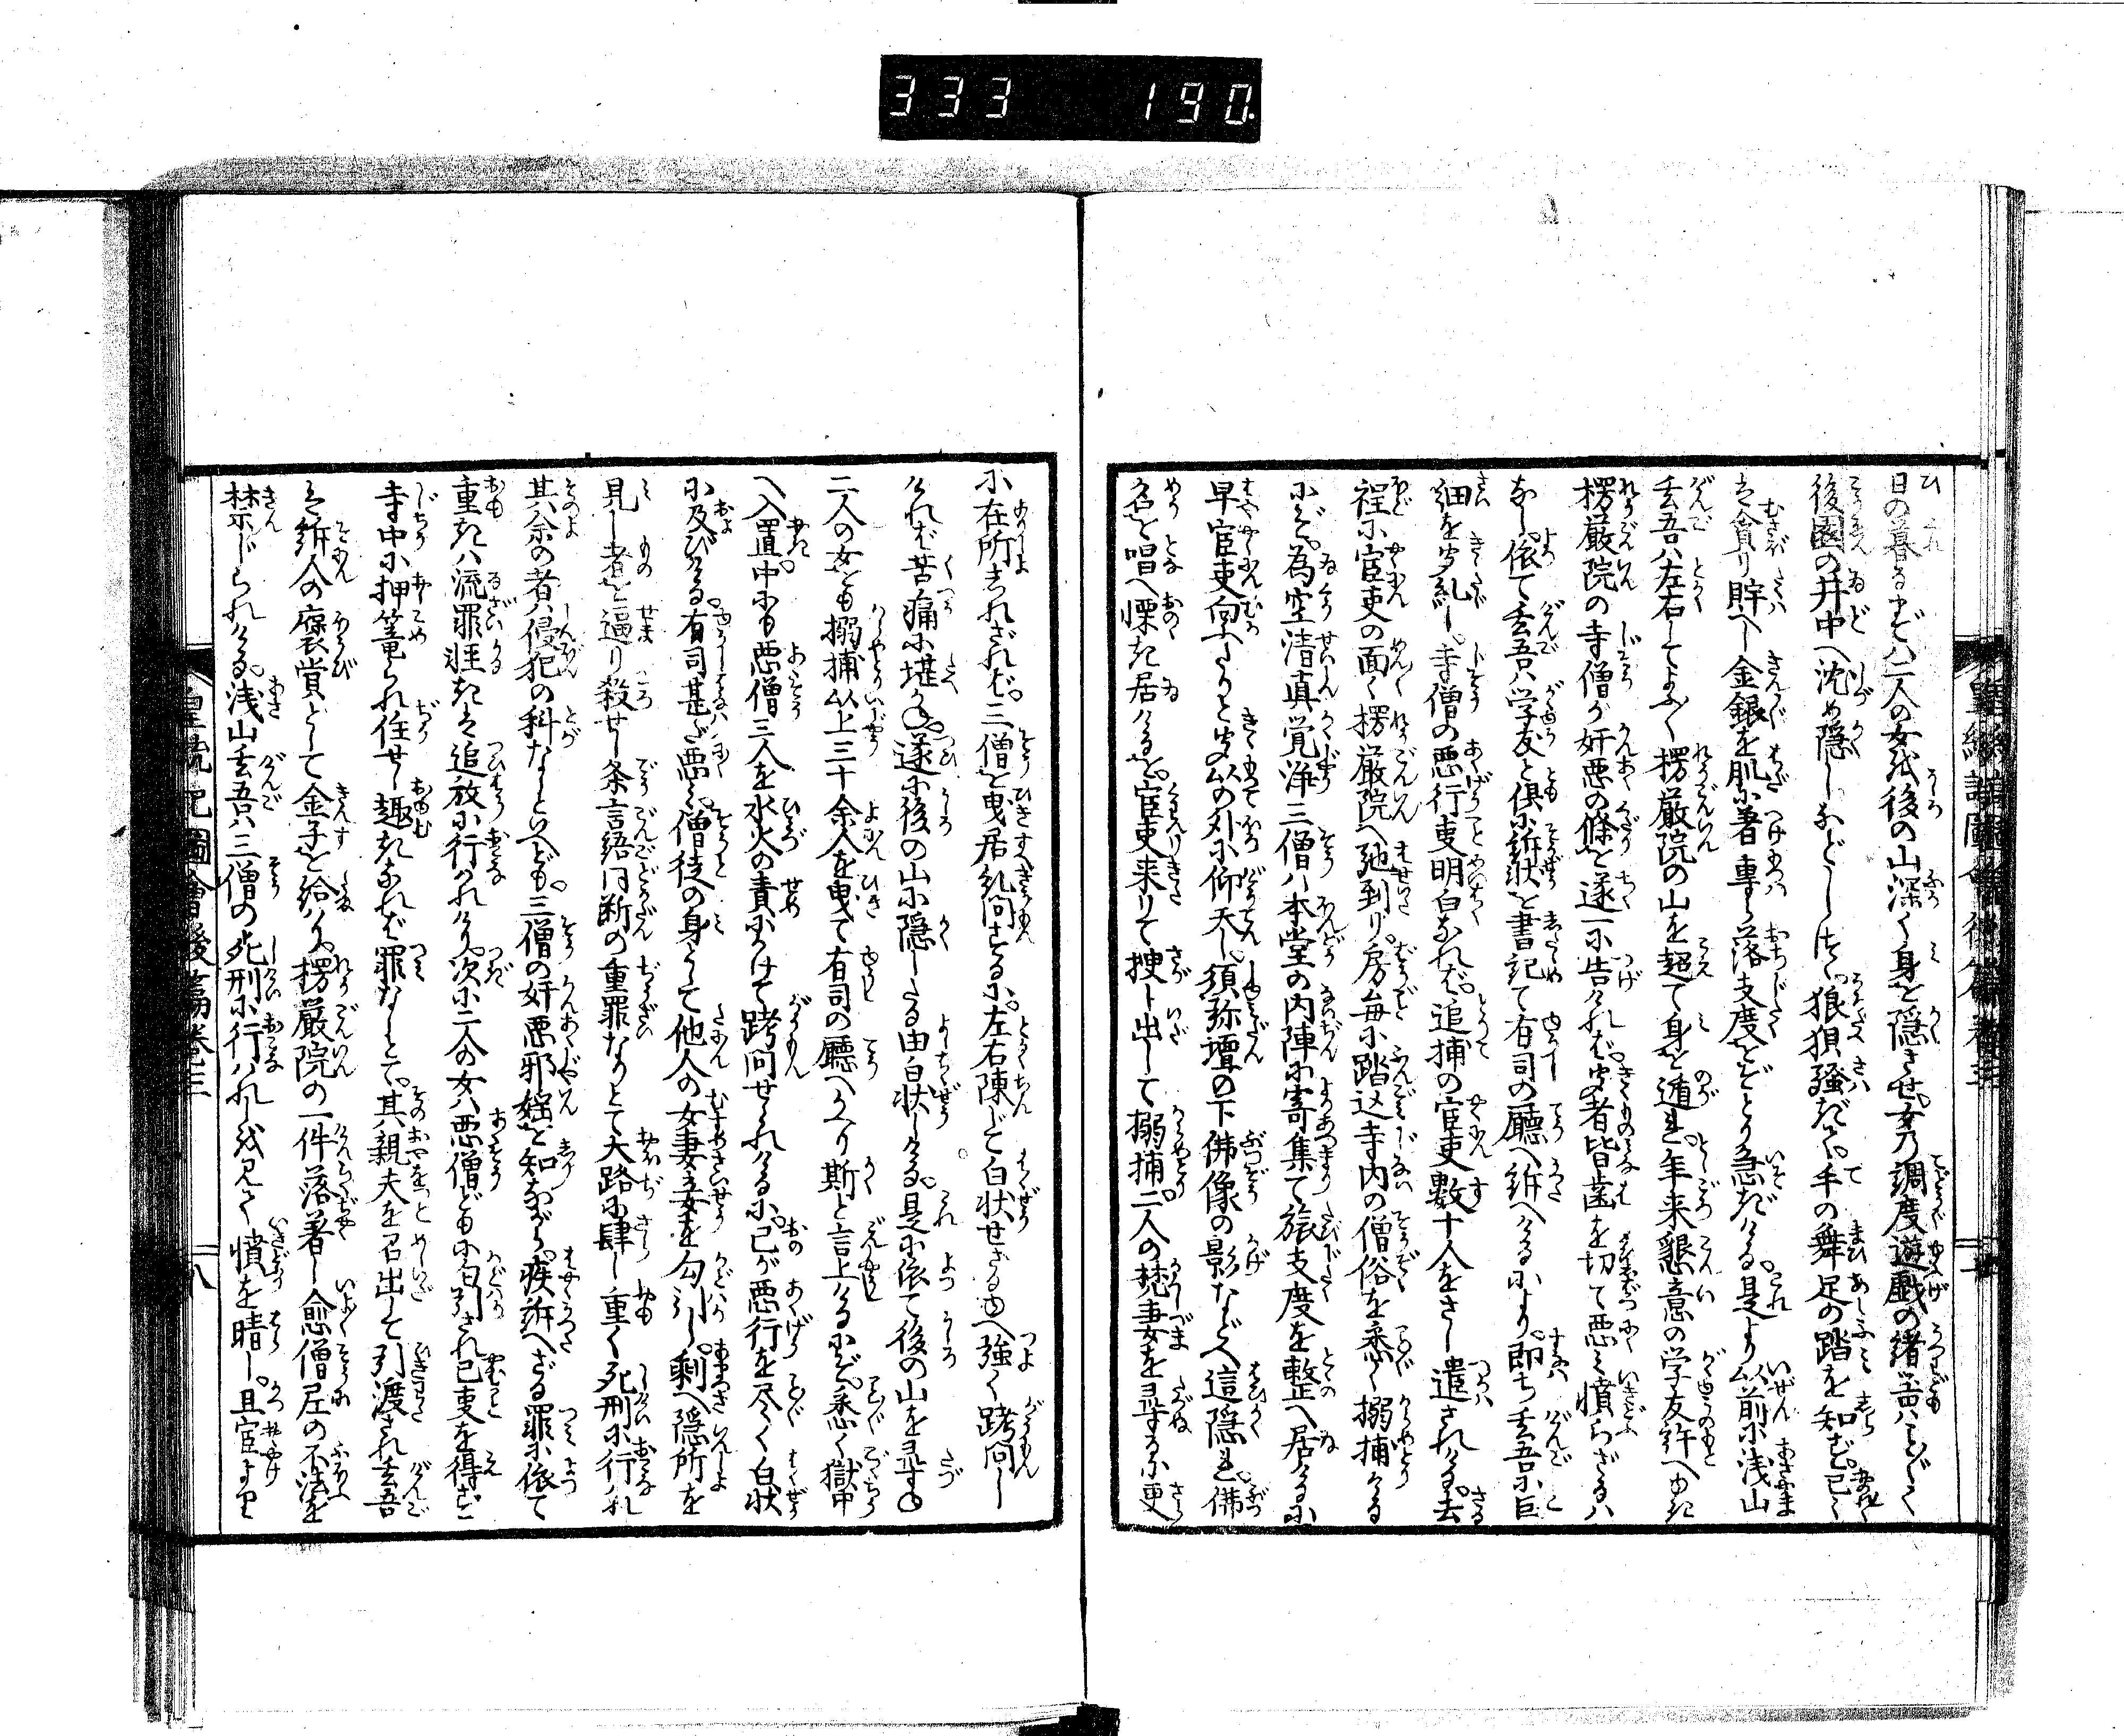 333 190
日の暮るまで二人の女を後の山深く身を隠させ女の調度遊戯の緒芸ハことごとく
後園の井中へ沈め隠しなどしつ狼狽騒だて手の舞足の踏を知ず已く
と貪り貯へ金銀を肌に著専ら落支度をぞとり急だける是より以前に浅山
玄吾ハ左右してよふく楞厳院の山を超て身を遁れ年来懇意の学友許へゆき
楞厳院の寺僧が奸悪の條を逐一に告ければ聞者皆歯を切て悪み憤らざるハ
なし依て玄吾ハ学友と倶に訴状を書記て有司の廳へ訴へけるにより即ち玄吾に巨
細を聞糺し寺僧の悪行事明白なれば追捕の官吏数十人をさし遣されける去
程に官吏の面々楞厳院へ馳到り房毎に踏込寺内の僧俗を悉く搦捕ける
にぞ為空清真覚浄三僧ハ本堂の内陣に寄集て旅支度を整へ居けるに
早官吏向へたりと聞以の外に仰天し須弥壇の下佛像の影などへ這隠れ佛
名を唱へ慄き居けるを官吏来りて捜し出して搦捕二人の梵妻を尋るに更
に在所しれざれば三僧を曳居糺問するに左右陳じて白状せざるゆへ強く拷問し
ければ苦痛に堪かね遂に後の山に隠したる由白状しける是に依て後の山を尋ね
二人の女をも搦捕以上三十余人を曳て有司の廳へかへり斯と言上けるにぞ悉く獄中
へ入置中にも悪僧三人を水火の責にかけて拷問せられけるに己が悪行を尽く白状
に及びける有司甚だ悪み僧徒の身として他人の女妻妾を勾引し剰へ隠所を
見し者を逼り殺せし条言語同断の重罪なりとて大路に肆し重く死刑に行れ
其余の者ハ侵犯の科なしといへども三僧の奸悪邪婬を知ながら疾訴へざる罪に依て
重きハ流罪軽きハ追放に行れけり次に二人の女ハ悪僧どもに勾引され已事を得ず
寺中に押篭られ住せし趣きなれば罪なしとて其親夫を召出して引渡され玄吾
を訴人の褒賞として金子を給ハり楞厳院の一件落著し愈僧尼の不法を
禁じられける浅山玄吾ハ三僧の死刑に行ハれしを見て憤を晴し且官より
皇統記圖會後篇巻三 八